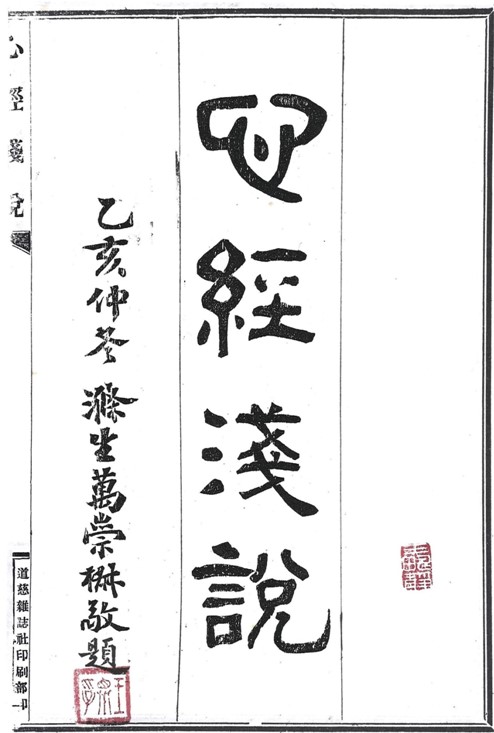 心經淺說
乙亥仲冬滌生萬崇楙敬題
心經淺說
道慈雜誌社印刷部印